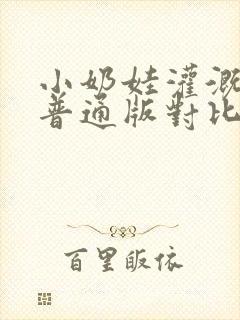 小奶娃灌溉
普通版對比
百里皈依